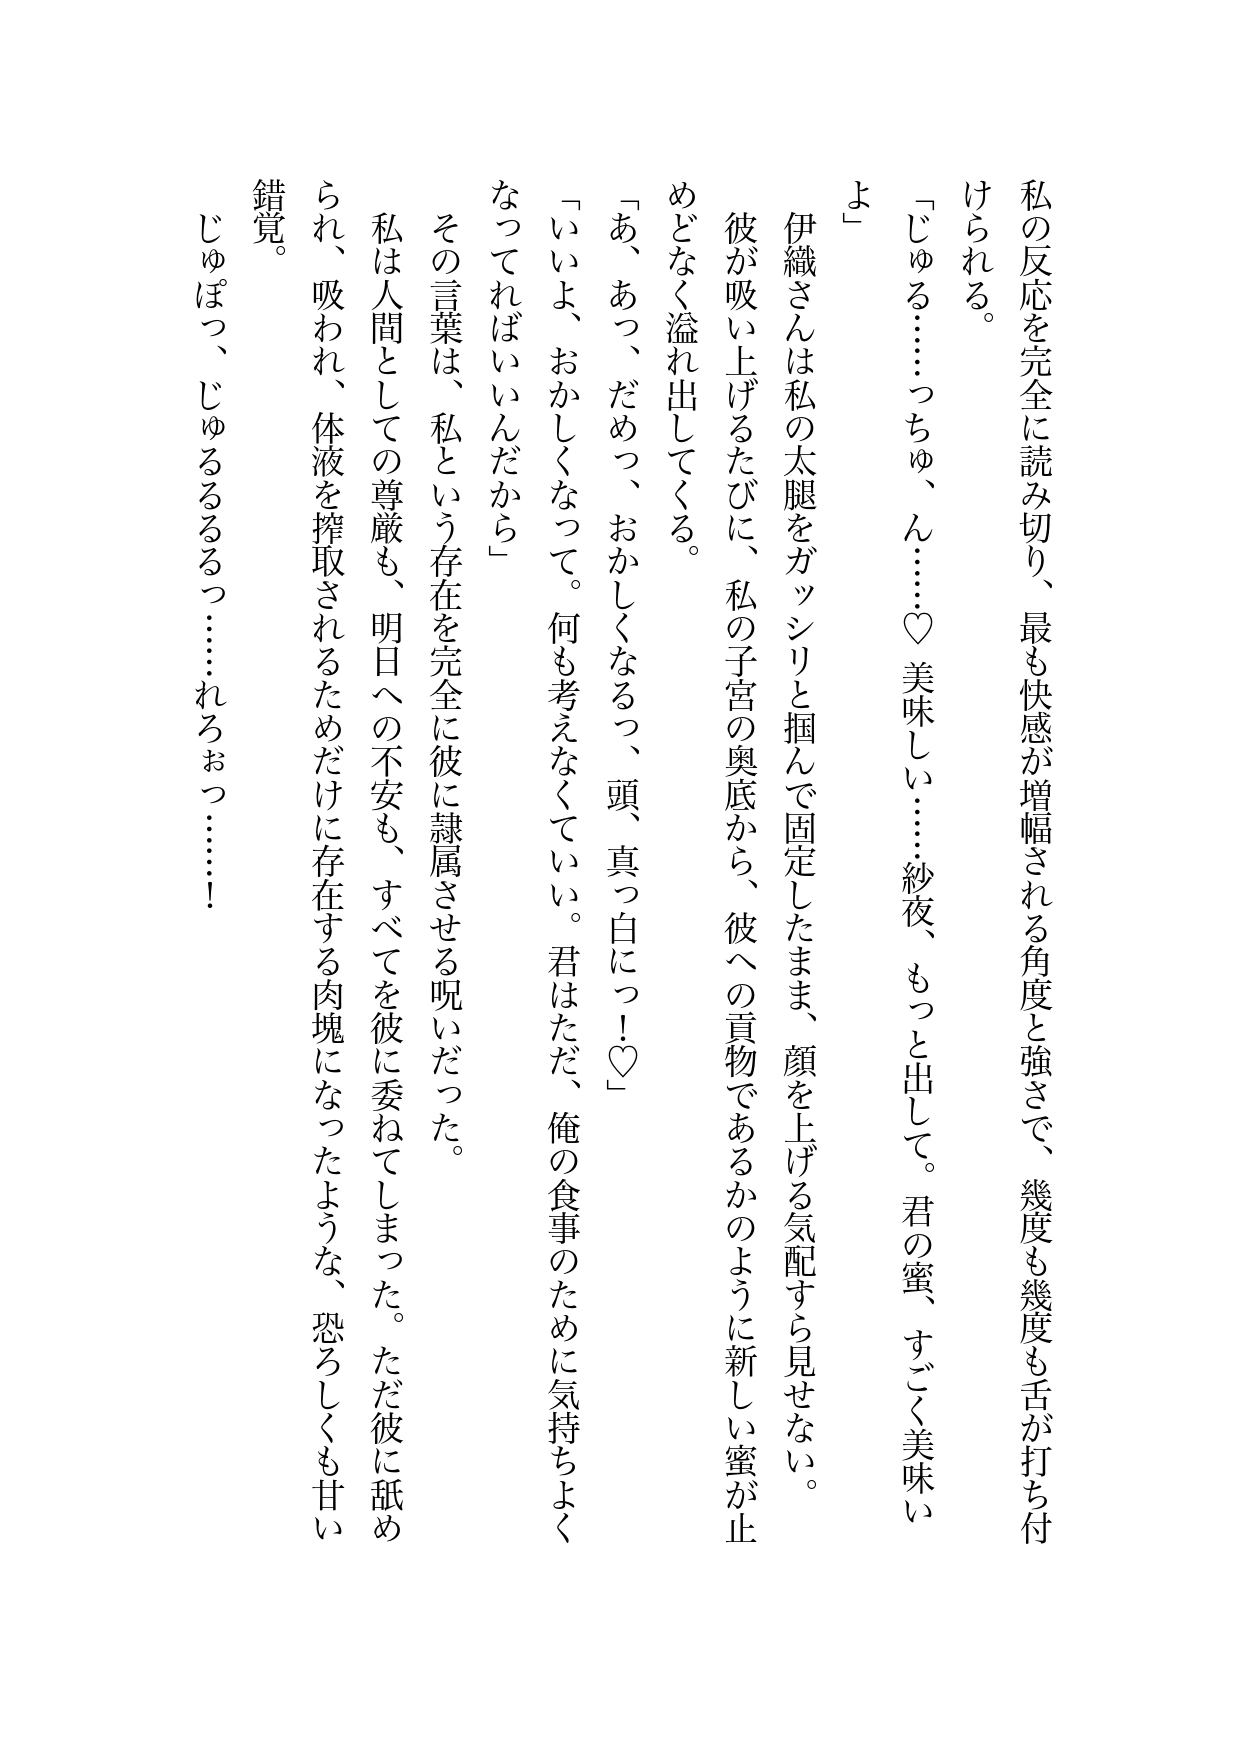 私の反応を完全に読み切り、最も快感が増幅される角度と強さで、幾度も幾度も舌が打ち付
けられる。
「じゅる……っちゅ、ん……♡ 美味しい……紗夜、もっと出して。君の蜜、すごく美味い
よ」
伊織さんは私の太腿をガッシリと掴んで固定したまま、顔を上げる気配すら見せない。
彼が吸い上げるたびに、私の子宮の奥底から、彼への貢物であるかのように新しい蜜が止
めどなく溢れ出してくる。
「あ、あっ、だめっ、おかしくなるっ、頭、真っ白にっ！♡」
「いいよ、おかしくなって。何も考えなくていい。君はただ、俺の食事のために気持ちよく
なってればいいんだから」
その言葉は、私という存在を完全に彼に隷属させる呪いだった。
私は人間としての尊厳も、明日への不安も、すべてを彼に委ねてしまった。ただ彼に舐め
られ、吸われ、体液を搾取されるためだけに存在する肉塊になったような、恐ろしくも甘い
錯覚。
じゅぽっ、じゅるるるるっ……れろぉっ……！